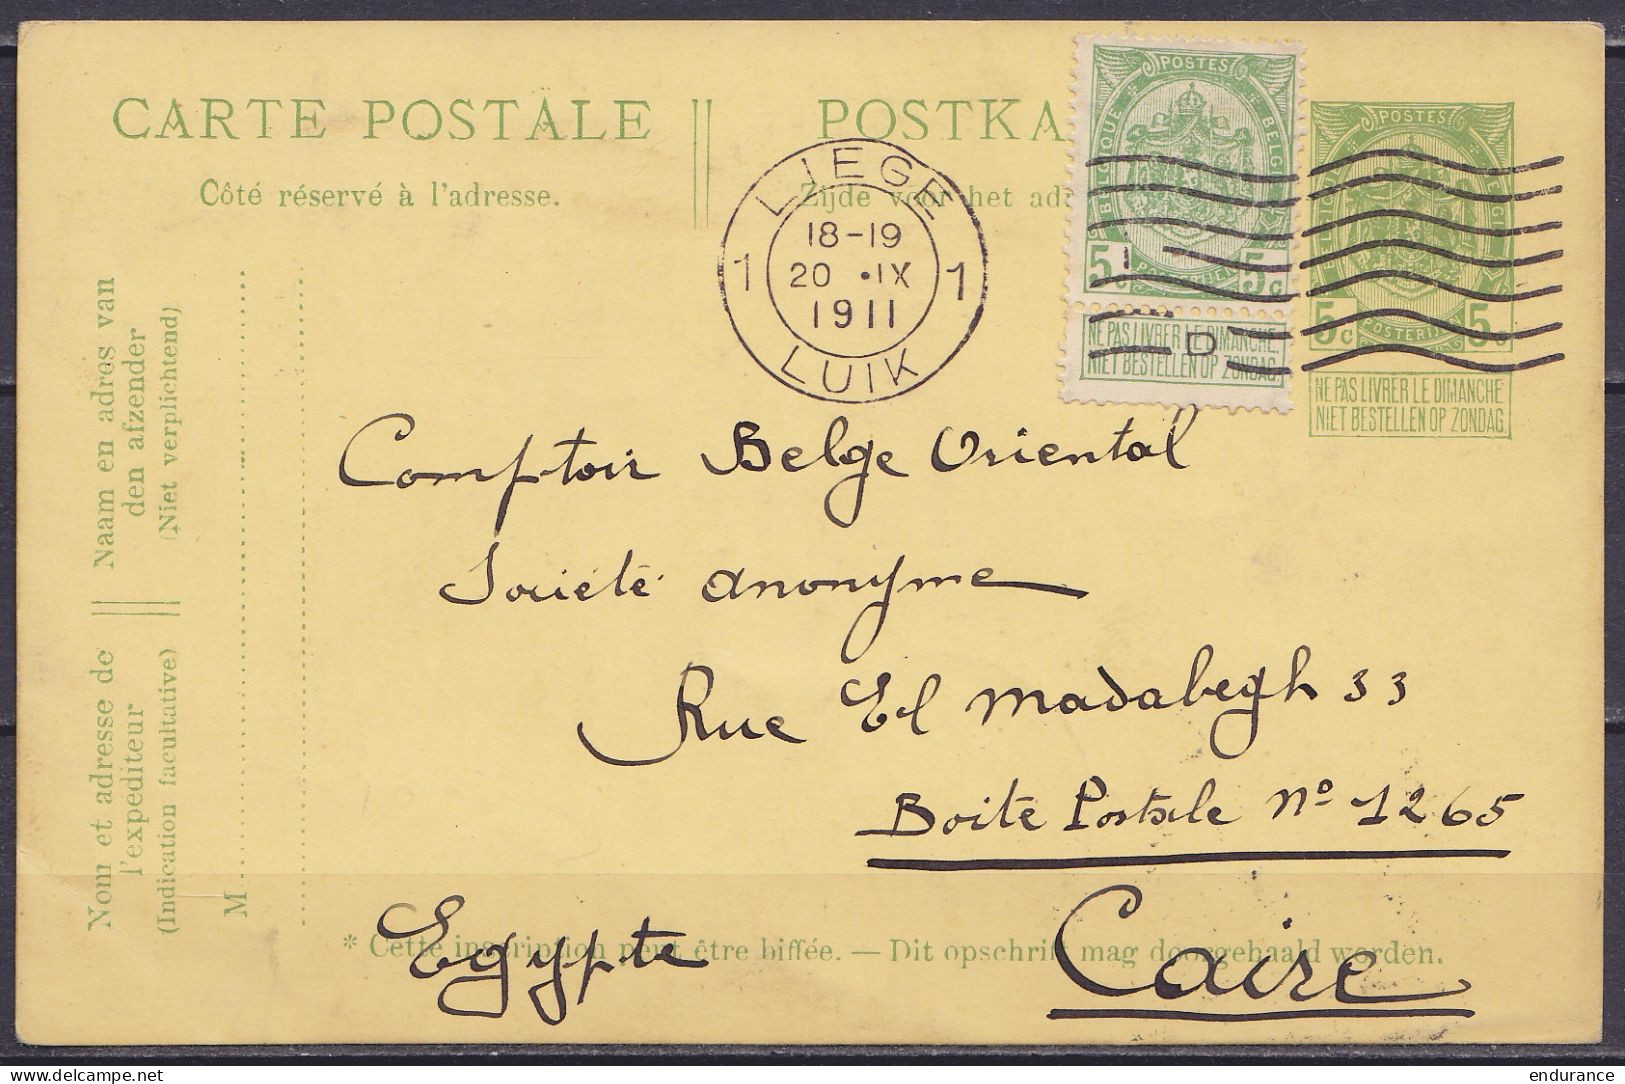 CARTE POSTALE
POSTKA
Côté réservé à l'adresse.
Zijde voor het ad
LIEGE
1 18-19 1
20 •IX
1911
LUIK
POSTES
BELGIQUE
BELGIË
5c POSTERIJEN 5c
NE PAS LIVRER LE DIMANCHE.
NIET BESTELLEN OP ZONDAG.
D
POSTES
5c POSTERIJEN 5c
NE PAS LIVRER LE DIMANCHE
NIET BESTELLEN OP ZONDAG.
Naam en adres van
den afzender
(Niet verplichtend)
Nom et adresse de
l'expéditeur
(Indication facultative)
M
Comptoir Belge Oriental
Société anonyme
Rue El Madabegh 33
Boite Postale No 1265
Caire
Egypte
* Cette inscription peut être biffée. — Dit opschrift mag doorgehaald worden.
delcampe.net
endurance